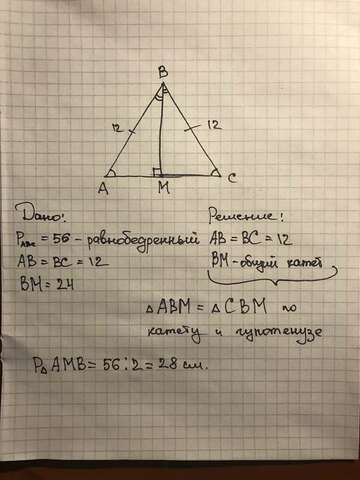 B
12
12
A
M
C
Дано:
P ABC = 56 - равнобедренный
AB = BC = 12
BM = 24
Решение:
AB = BC = 12
BM - общий катет
△ABM = △CBM по
катету и гипотенузе
P△ AMB = 56 : 2 = 28 см.